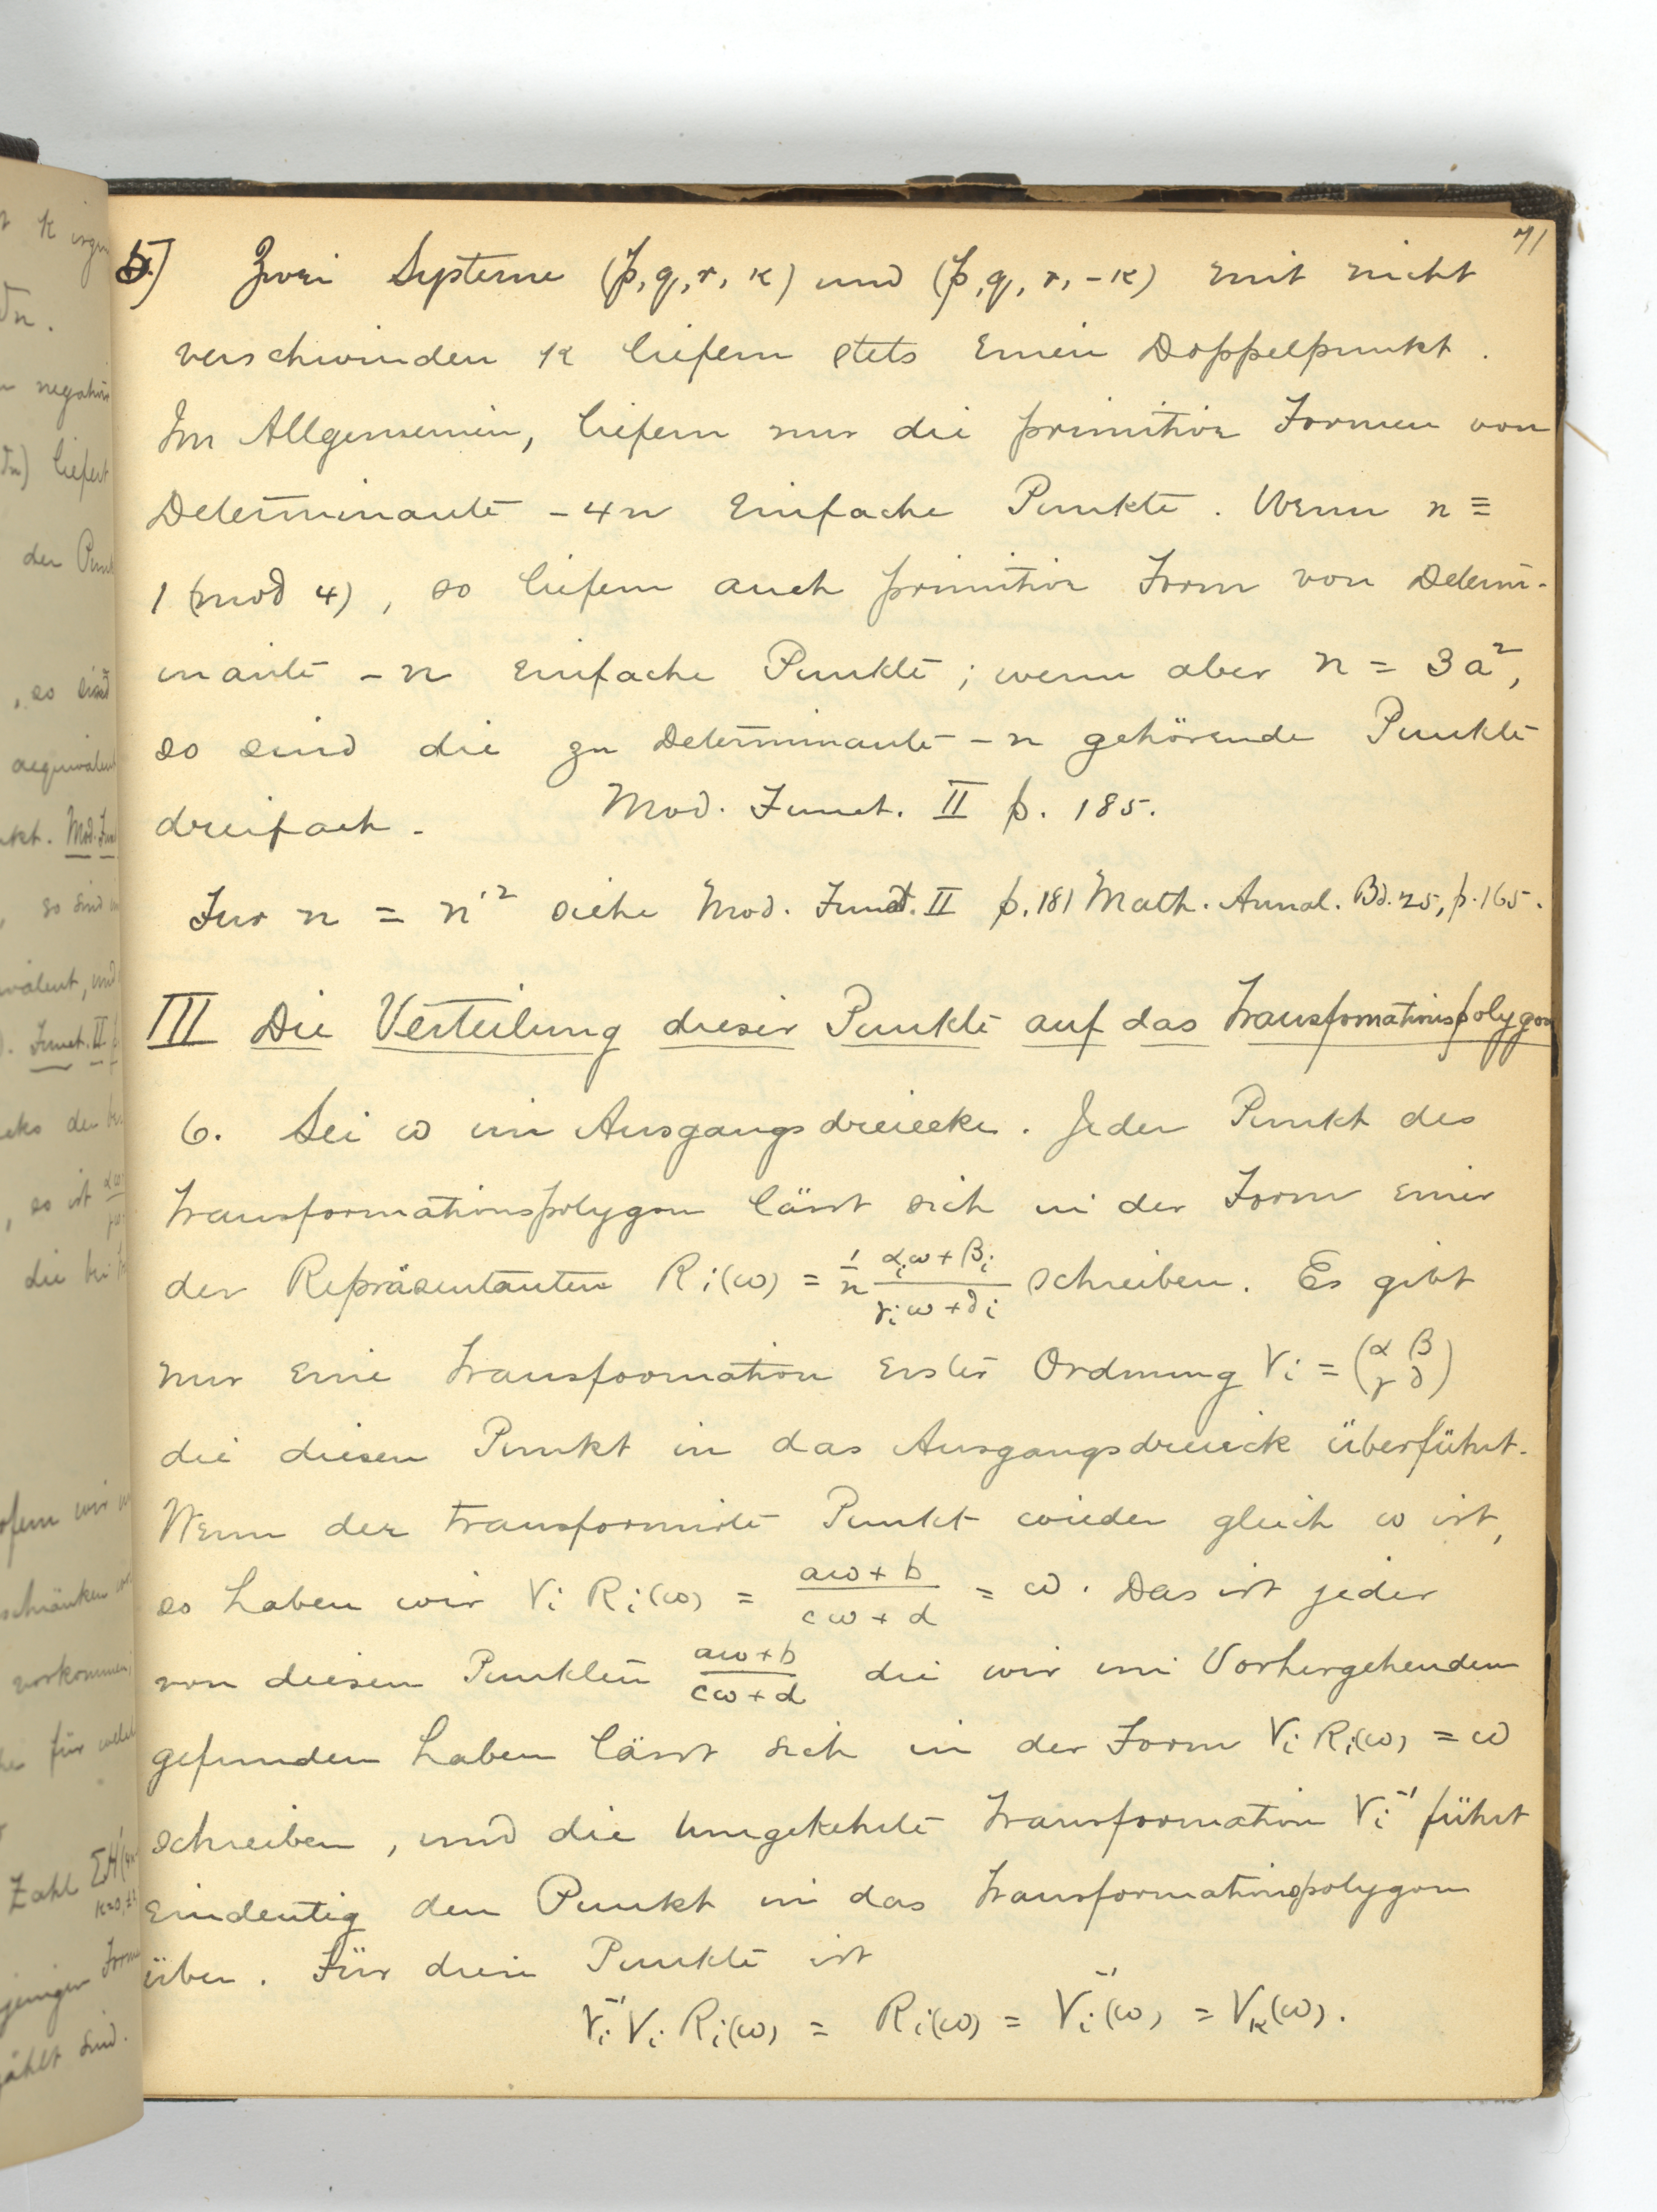 71
5) Zwei Systeme (p, q, r, κ) und (p, q, r, -κ) mit nicht
verschwinden κ liefern stets einen Doppelpunkt.
Im Allgemeinen, liefern nur die primitive Formen von
Determinante -4n einfache Punkte. Wenn n ≡
1 (mod 4), so liefern auch primitive Form von Determi-
nante -n einfache Punkte; wenn aber n = 3a²,
so sind die zu Determinante -n gehörende Punkte
dreifach. Mod. Funct. II p. 185.
Fur n = n'² siehe Mod. Funct. II p. 181 Math. Annal. Bd. 25, p. 165.
III Die Verteilung dieser Punkte auf das Transfomationspolygon
6. Sei ω im Ausgangsdreiecke. Jeder Punkt des
Transformationspolygon lässt sich in der Form einer
der Repräsentanten Ri(ω) = 1/n (αiω+βi)/(γiω+δi) schreiben. Es gibt
nur eine Transformation erster Ordnung Vi = (α β / γ δ)
die diesen Punkt in das Ausgangsdreieck überführt.
Wenn der transformirte Punkt wieder gleich ω ist,
so haben wir Vi Ri(ω) = (aω+b)/(cω+d) = ω. Das ist jeder
von diesen Punkten (aω+b)/(cω+d) die wir im Vorhergehenden
gefunden haben lässt sich in der Form Vi Ri(ω) = ω
schreiben, und die umgekehrte Transformation Vi⁻¹ führt
eindeutig den Punkt in das Transformationspolygon
über. Für diese Punkte ist
Vi⁻¹ Vi Ri(ω) = Ri(ω) = Vi⁻¹(ω) = Vκ(ω).